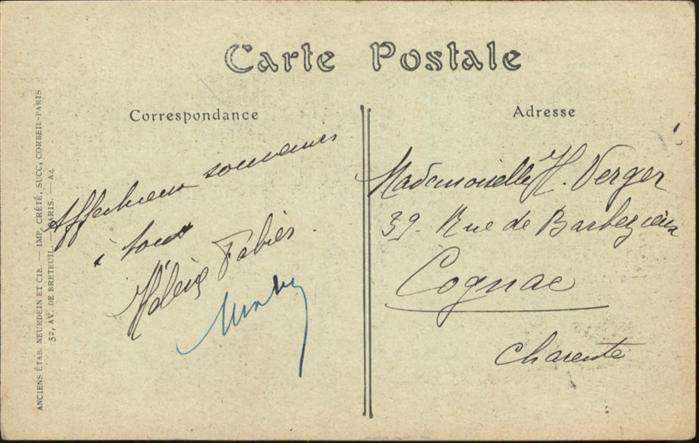 Carte Postale
Correspondance
Adresse
Affectueux souvenirs
à tous
Fabier
Mademoiselle H. Verger
39. Rue de Barbezieux
Cognac
Charente
ANCIENS ÉTAB. NEURDEIN ET CIE. — IMP. CRÉTÉ, SUCC, CORBEIL-PARIS
52, AV. DE BRETEUIL — PARIS. — A4